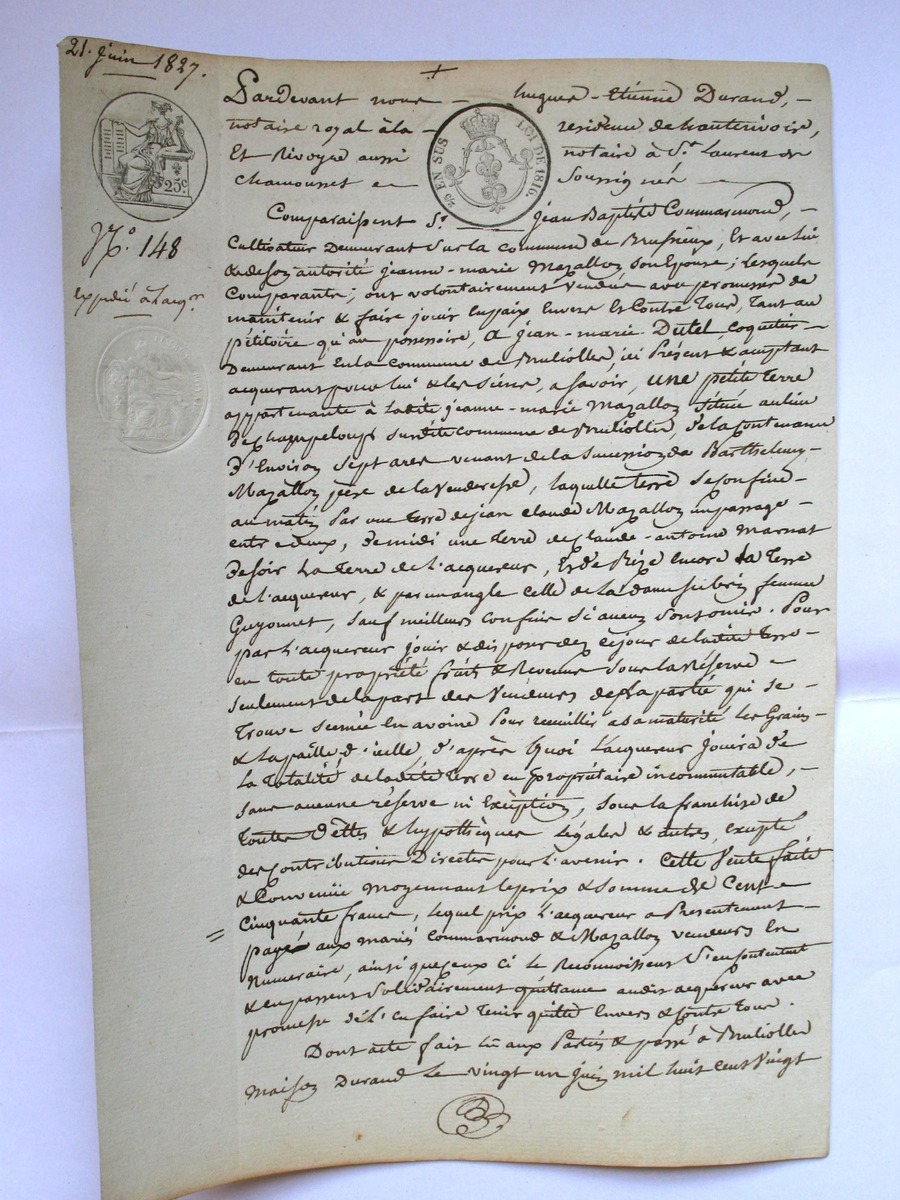 21. juin 1827.
25c
N.° 148
expédié à l'acq.r
EN SUS LOI DE 1816.
Pardevant nous hugues-Etiénne Durand,
notaire royal à la résidence de hauterivoire,
Et Rivoyre aussi notaire à St. Laurent de
Chamousset Soussignés
Comparaissent Sr. jean Baptiste Commarmond,
Cultivateur Demeurant Sur la commune de Brussieux, Et avec lui
& de son autorité jeanne-marie Mazallon son Epouse; lesquels
Comparants; ont volontairement Vendus avec promesse de
maintenir & faire jouir en paix Envers Et Contre Tous, Tant au
pétitoire qu'au possessoire, à jean-marie Dutel, coquetier
Demeurant En la Commune de Brullioles, ici Présent & acceptant
acquerant pour lui & les siens, a savoir, une petite terre
appartenante à ladite jeanne-marie Mazallon Située au lieu
De champeloup sur dite commune de Brulliolles, De la Contenance
D'Environ Sept ares venant de la succession de Barthelemy
Mazallon père de la Venderesse, laquelle terre Se confine
au matin Par une terre de jean claude Mazallon un passage
entre deux, De midi une terre de claude-antoine Marnat
De soir La terre de L'acquereur, Et De Bize encore La Terre
de L'acquereur, & par un angle celle de La Dame femme
Guyonnet, Sauf meilleurs confins Si aucuns Sont omis. Pour
par L'acquereur jouir & disposer dez cejour de ladite terre
en toute propriété fruits & Revenus Sous la Réserve
Seulement de la part des Vendeurs de La partie qui se
Trouve Semée En avoine Pour recueillir a sa maturité Les Grains
& La paille D'icelle D'après Quoi L'acquereur jouira De
La Totalité de ladite Terre en propriétaire incommutable,
Sans aucune réserve ni Exception, Sous la franchise de
toutes Dettes & hypothèques Légales & autres, excepté
des Contributions Directes pour L'avenir. Cette Vente faite
& Convenüe Moyennant le prix & Somme de Cent
Cinquante francs, lequel prix L'acquereur a Présentement
payé aux mariés Commarmond & Mazallon vendeurs En
Numeraire, ainsi que ceux ci le Reconnoissent S'en contentent
& en passent Solidairement quittance audit acquereur avec
promesse De L'en faire Tenir quitte Envers & Contre Tous.
Dont acte fait lu aux Parties & passé à Brulliolles
Maison Durand Le vingt un juin mil huit cent Vingt